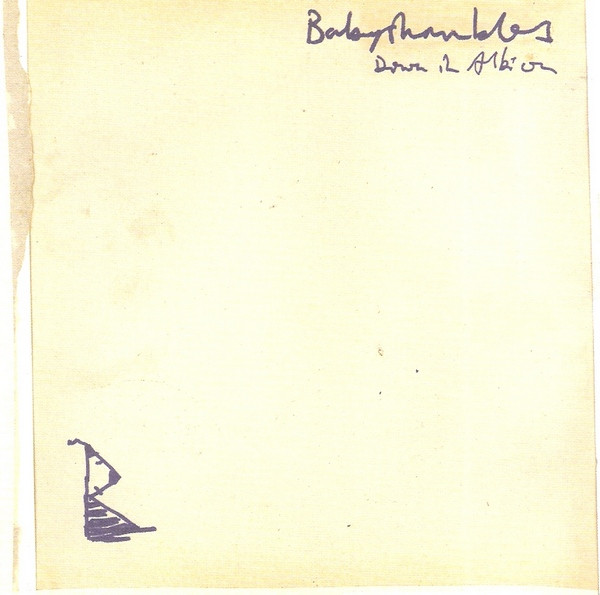 Babyshambles
Down in Albion
B